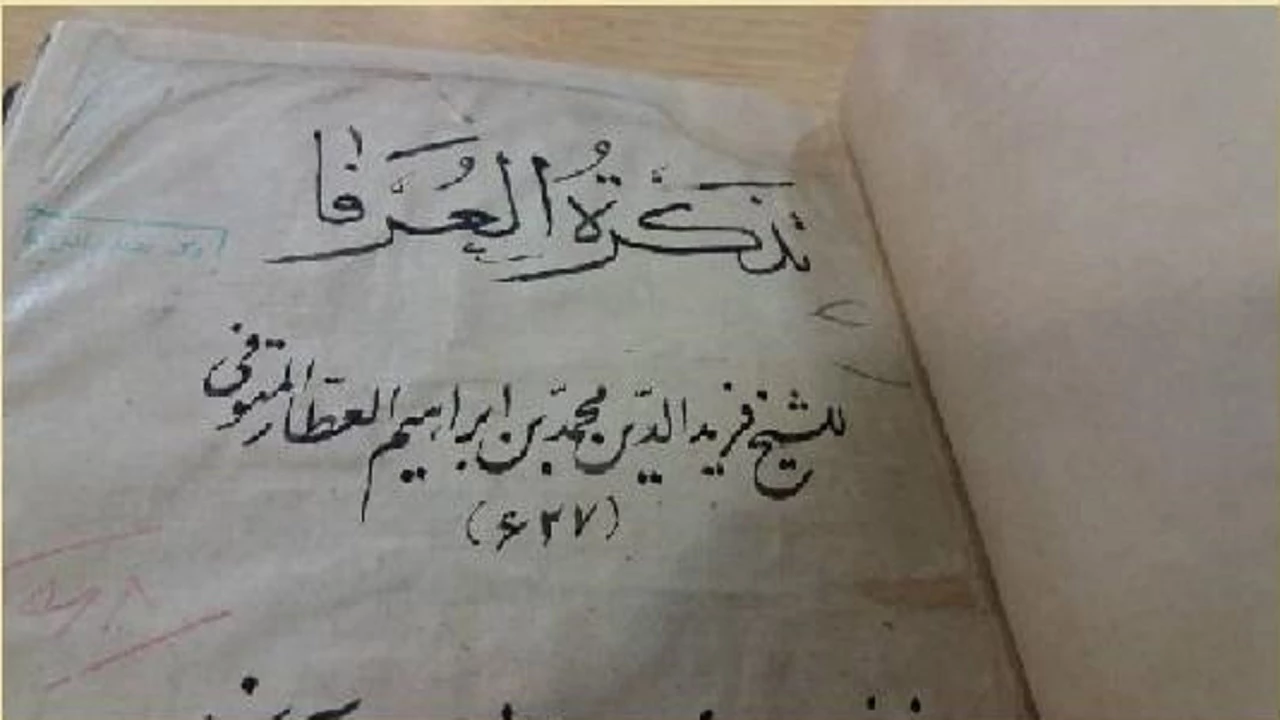 تذكرةُ العُرفا
للشيخ فريد الدّين محمّد بن ابراهيم العطّار المتوفى
(۶۲۷)